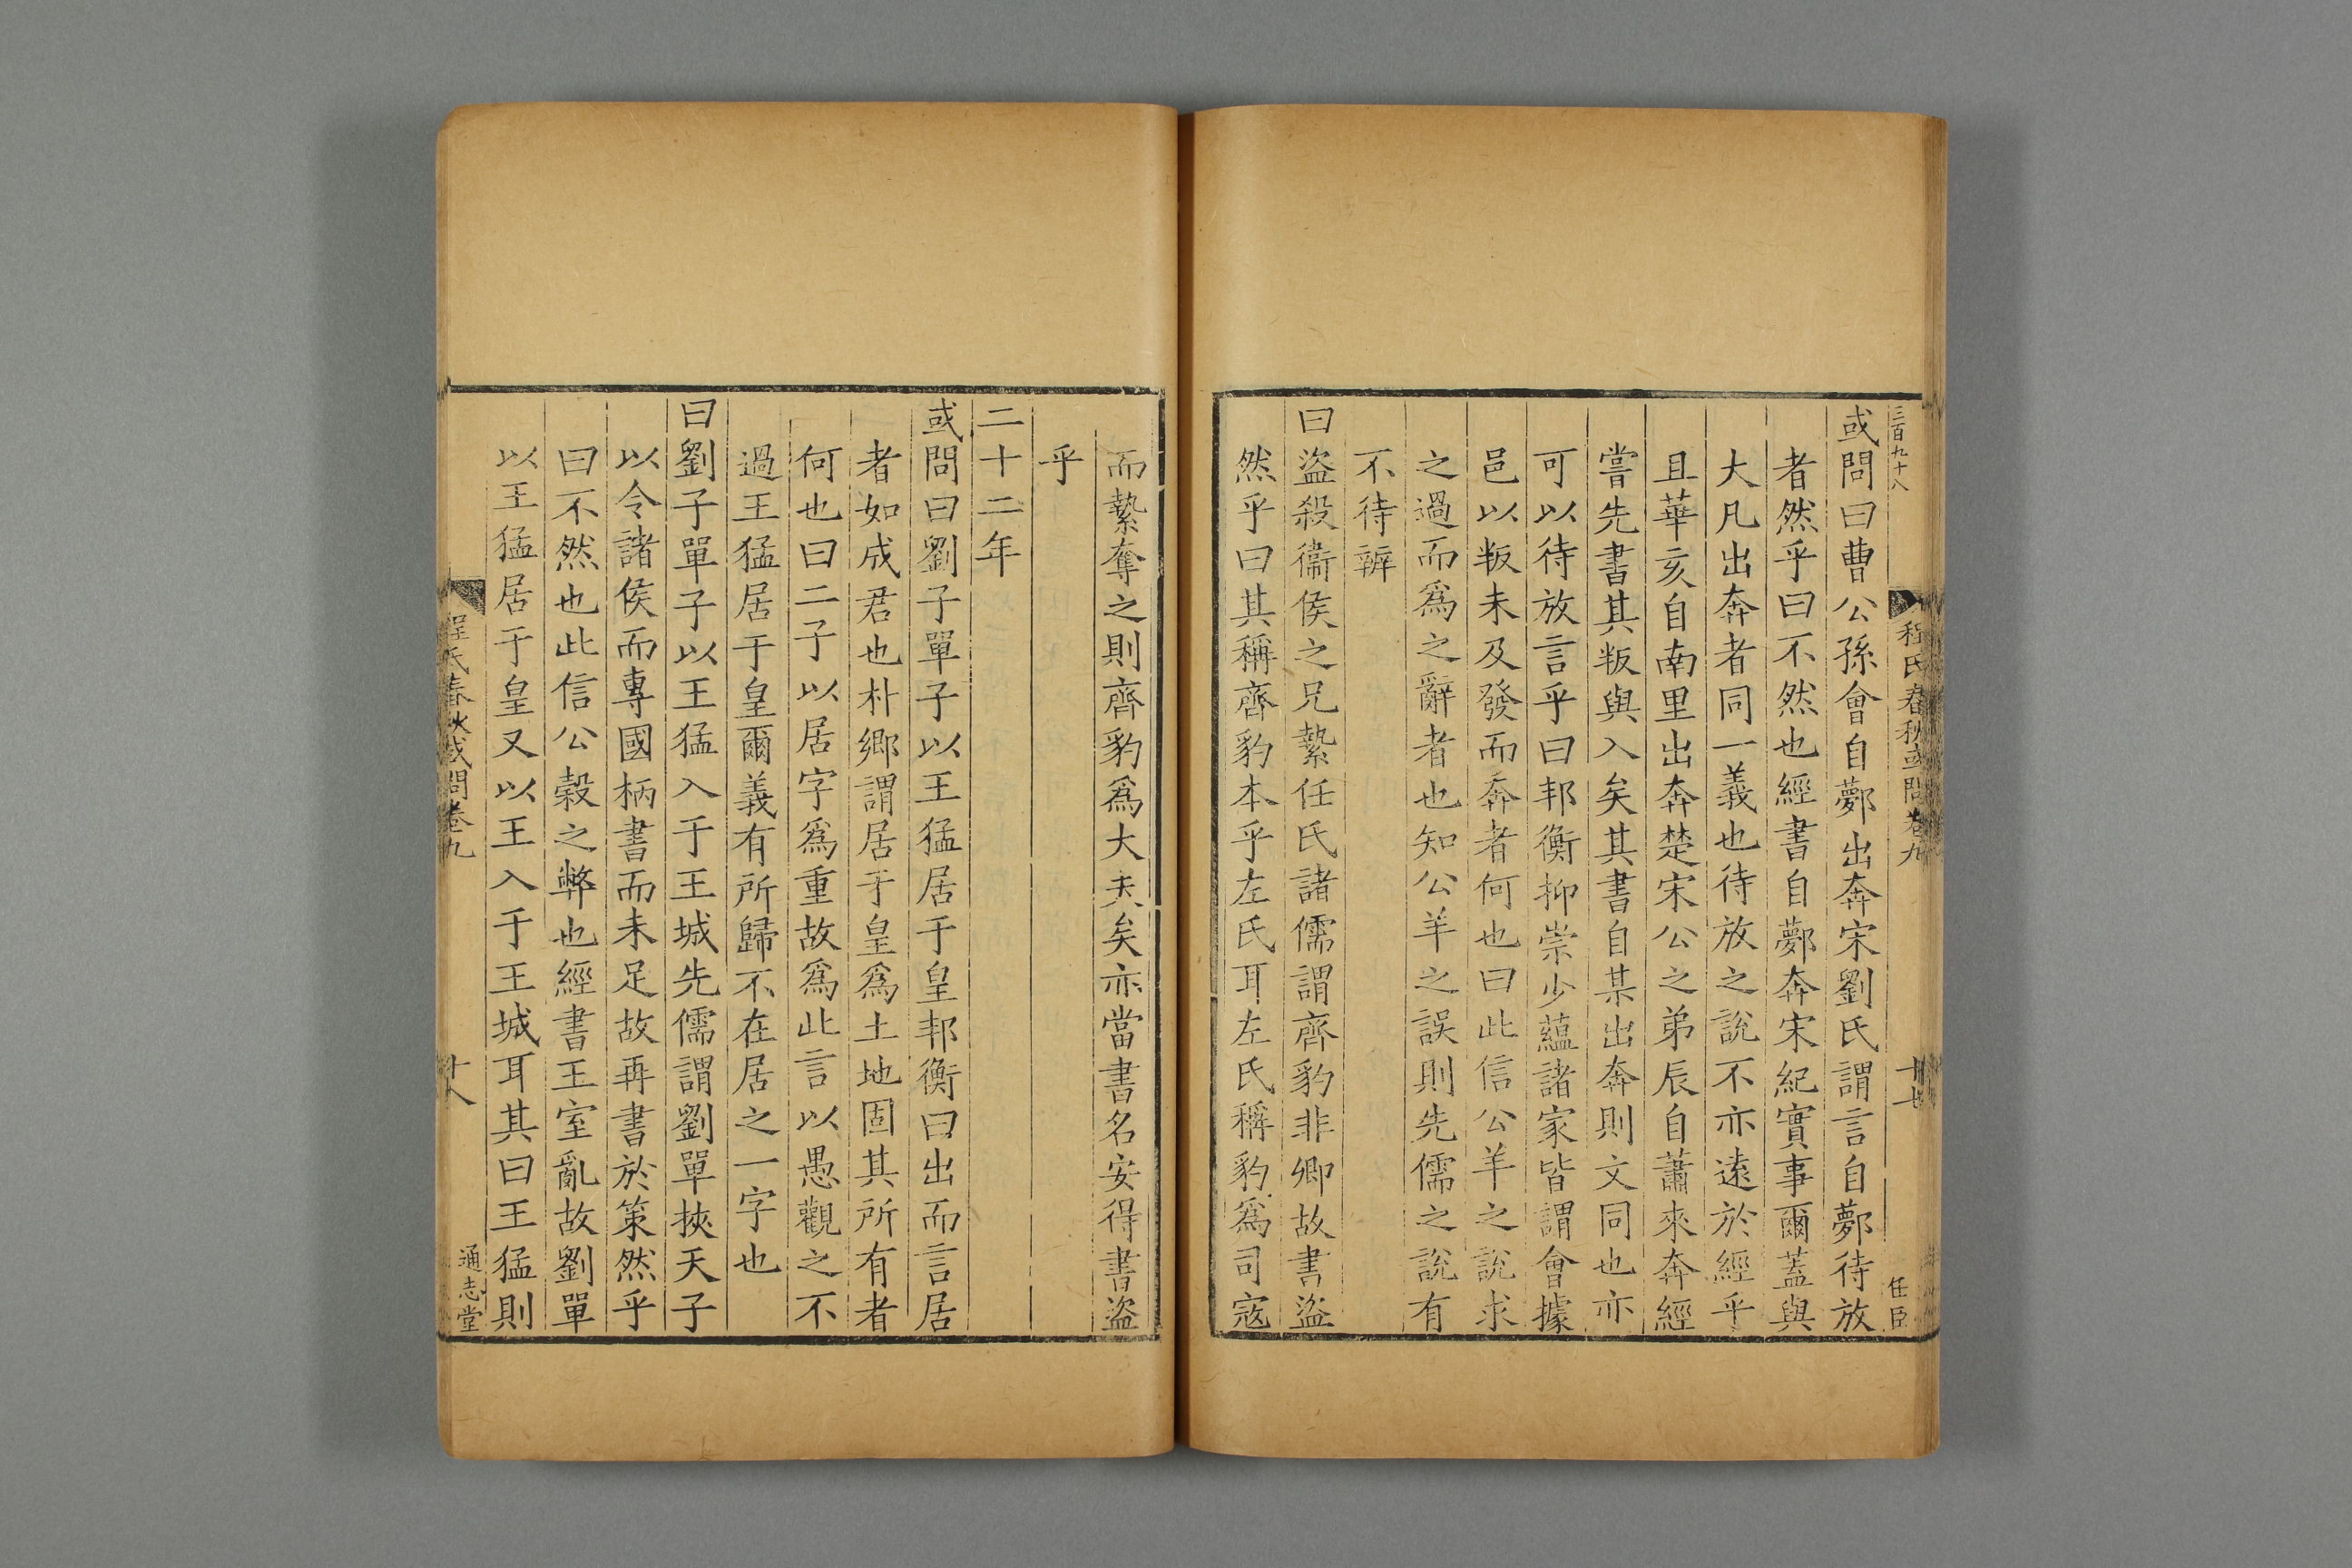 三百九十八
程氏春秋或問卷九
十七
任臣
或問曰曹公孫會自鄸出奔宋劉氏謂言自鄸待放
者然乎曰不然也經書自鄸奔宋紀實事爾蓋與
大凡出奔者同一義也待放之說不亦遠於經乎
且華亥自南里出奔楚宋公之弟辰自蕭來奔經
嘗先書其叛與入矣其書自某出奔則文同也亦
可以待放言乎曰邦衡抑崇少蘊諸家皆謂會據
邑以叛未及發而奔者何也曰此信公羊之說求
之過而爲之辭者也知公羊之誤則先儒之說有
不待辨
曰盜殺衞侯之兄縶任氏諸儒謂齊豹非卿故書盜
然乎曰其稱齊豹本乎左氏耳左氏稱豹爲司寇
而縶奪之則齊豹爲大夫矣亦當書名安得書盜
乎
二十二年
或問曰劉子單子以王猛居于皇邦衡曰出而言居
者如成君也朴鄉謂居于皇爲土地固其所有者
何也曰二子以居字爲重故爲此言以愚觀之不
過王猛居于皇爾義有所歸不在居之一字也
曰劉子單子以王猛入于王城先儒謂劉單挾天子
以令諸侯而專國柄書而未足故再書於策然乎
曰不然也此信公榖之弊也經書王室亂故劉單
以王猛居于皇又以王入于王城耳其曰王猛則
程氏春秋或問卷九
十八
通志堂